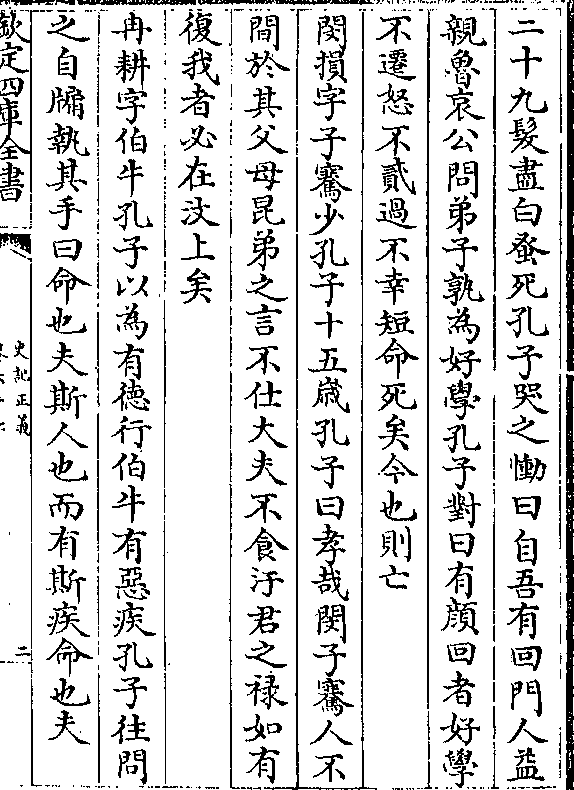 二十九髮盡白蚤死孔子哭之慟曰自吾有回門人益
親魯哀公問弟子孰為好學孔子對曰有顔回者好學
不遷怒不貳過不幸短命死矣今也則亡
閔損字子騫少孔子十五歲孔子曰孝哉閔子騫人不
間於其父母昆弟之言不仕大夫不食汙君之禄如有
復我者必在汶上矣
冉耕字伯牛孔子以為有德行伯牛有惡疾孔子往問
之自牖執其手曰命也夫斯人也而有斯疾命也夫
欽定四庫全書
史記正義
二